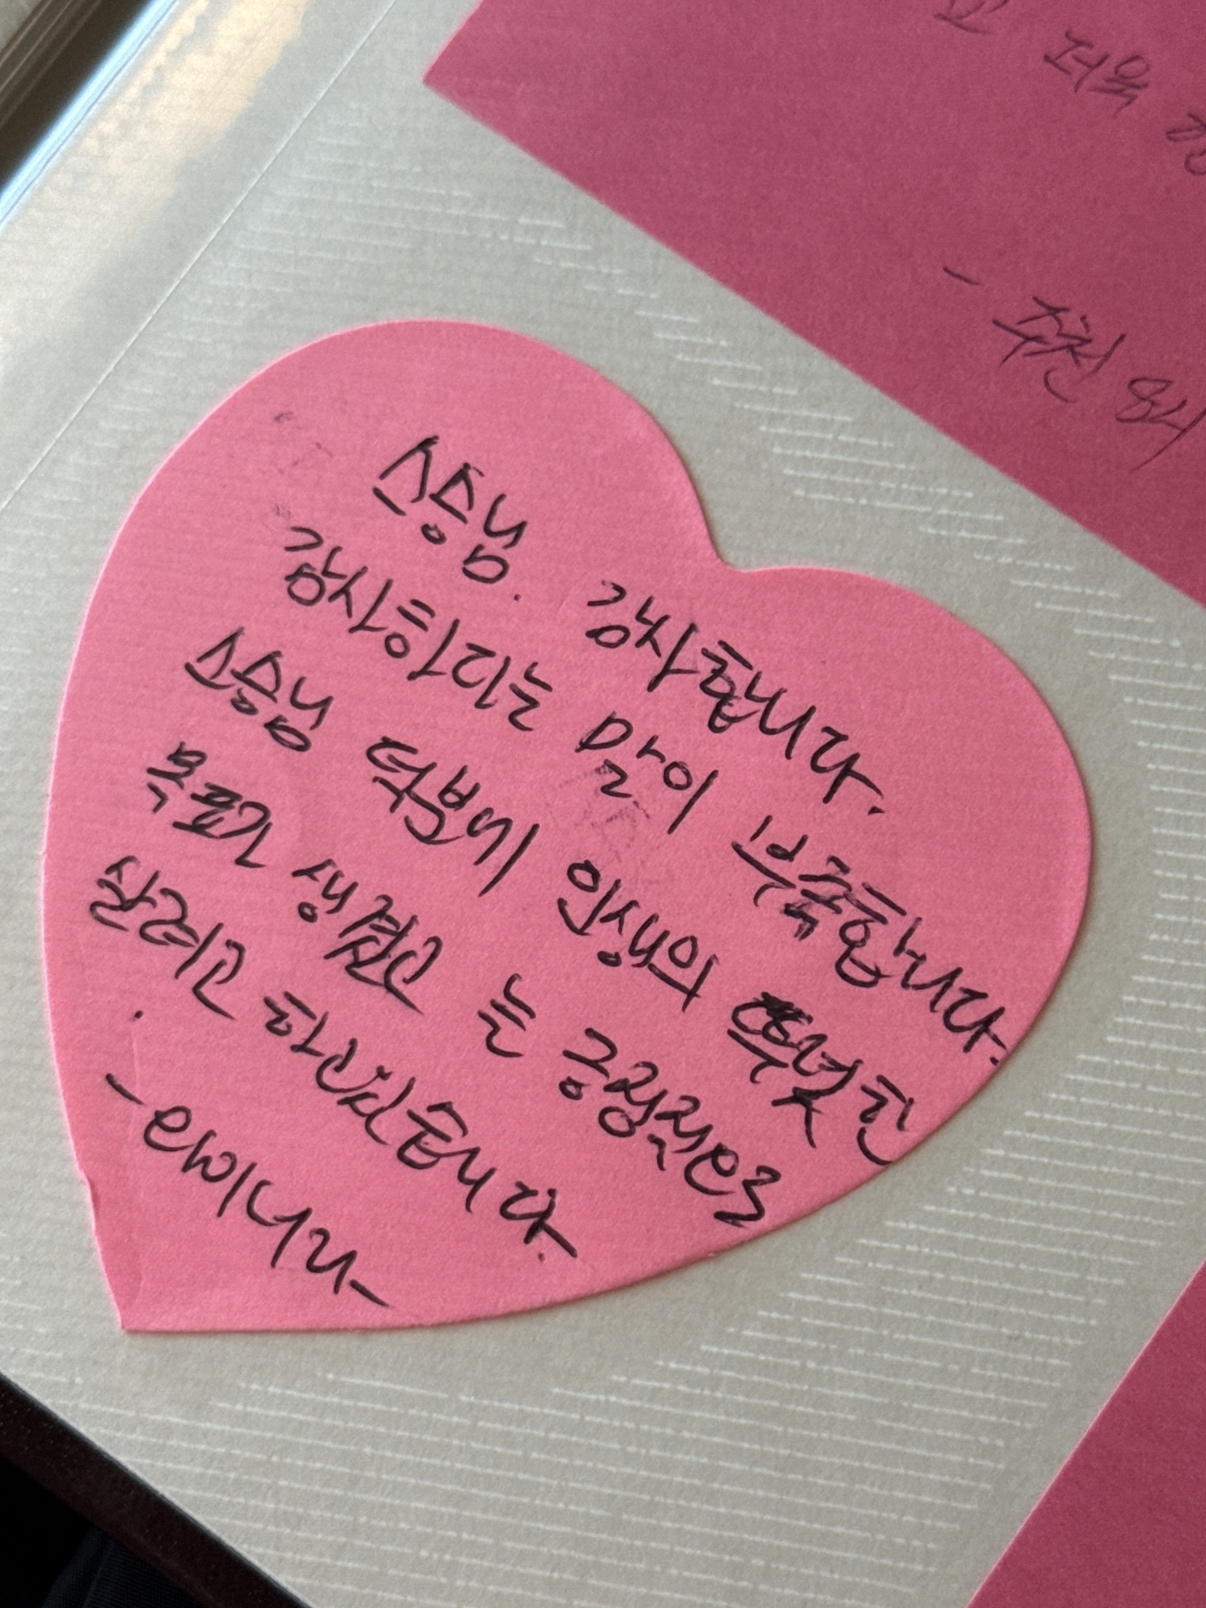 고 더욱
- 추천
스승님. 감사합니다.
감사하다는 말이 부족합니다.
스승님 덕분에 인생의 뚜렷한
목표가 생겼고 늘 긍정적으로
살려고 하고있습니다.